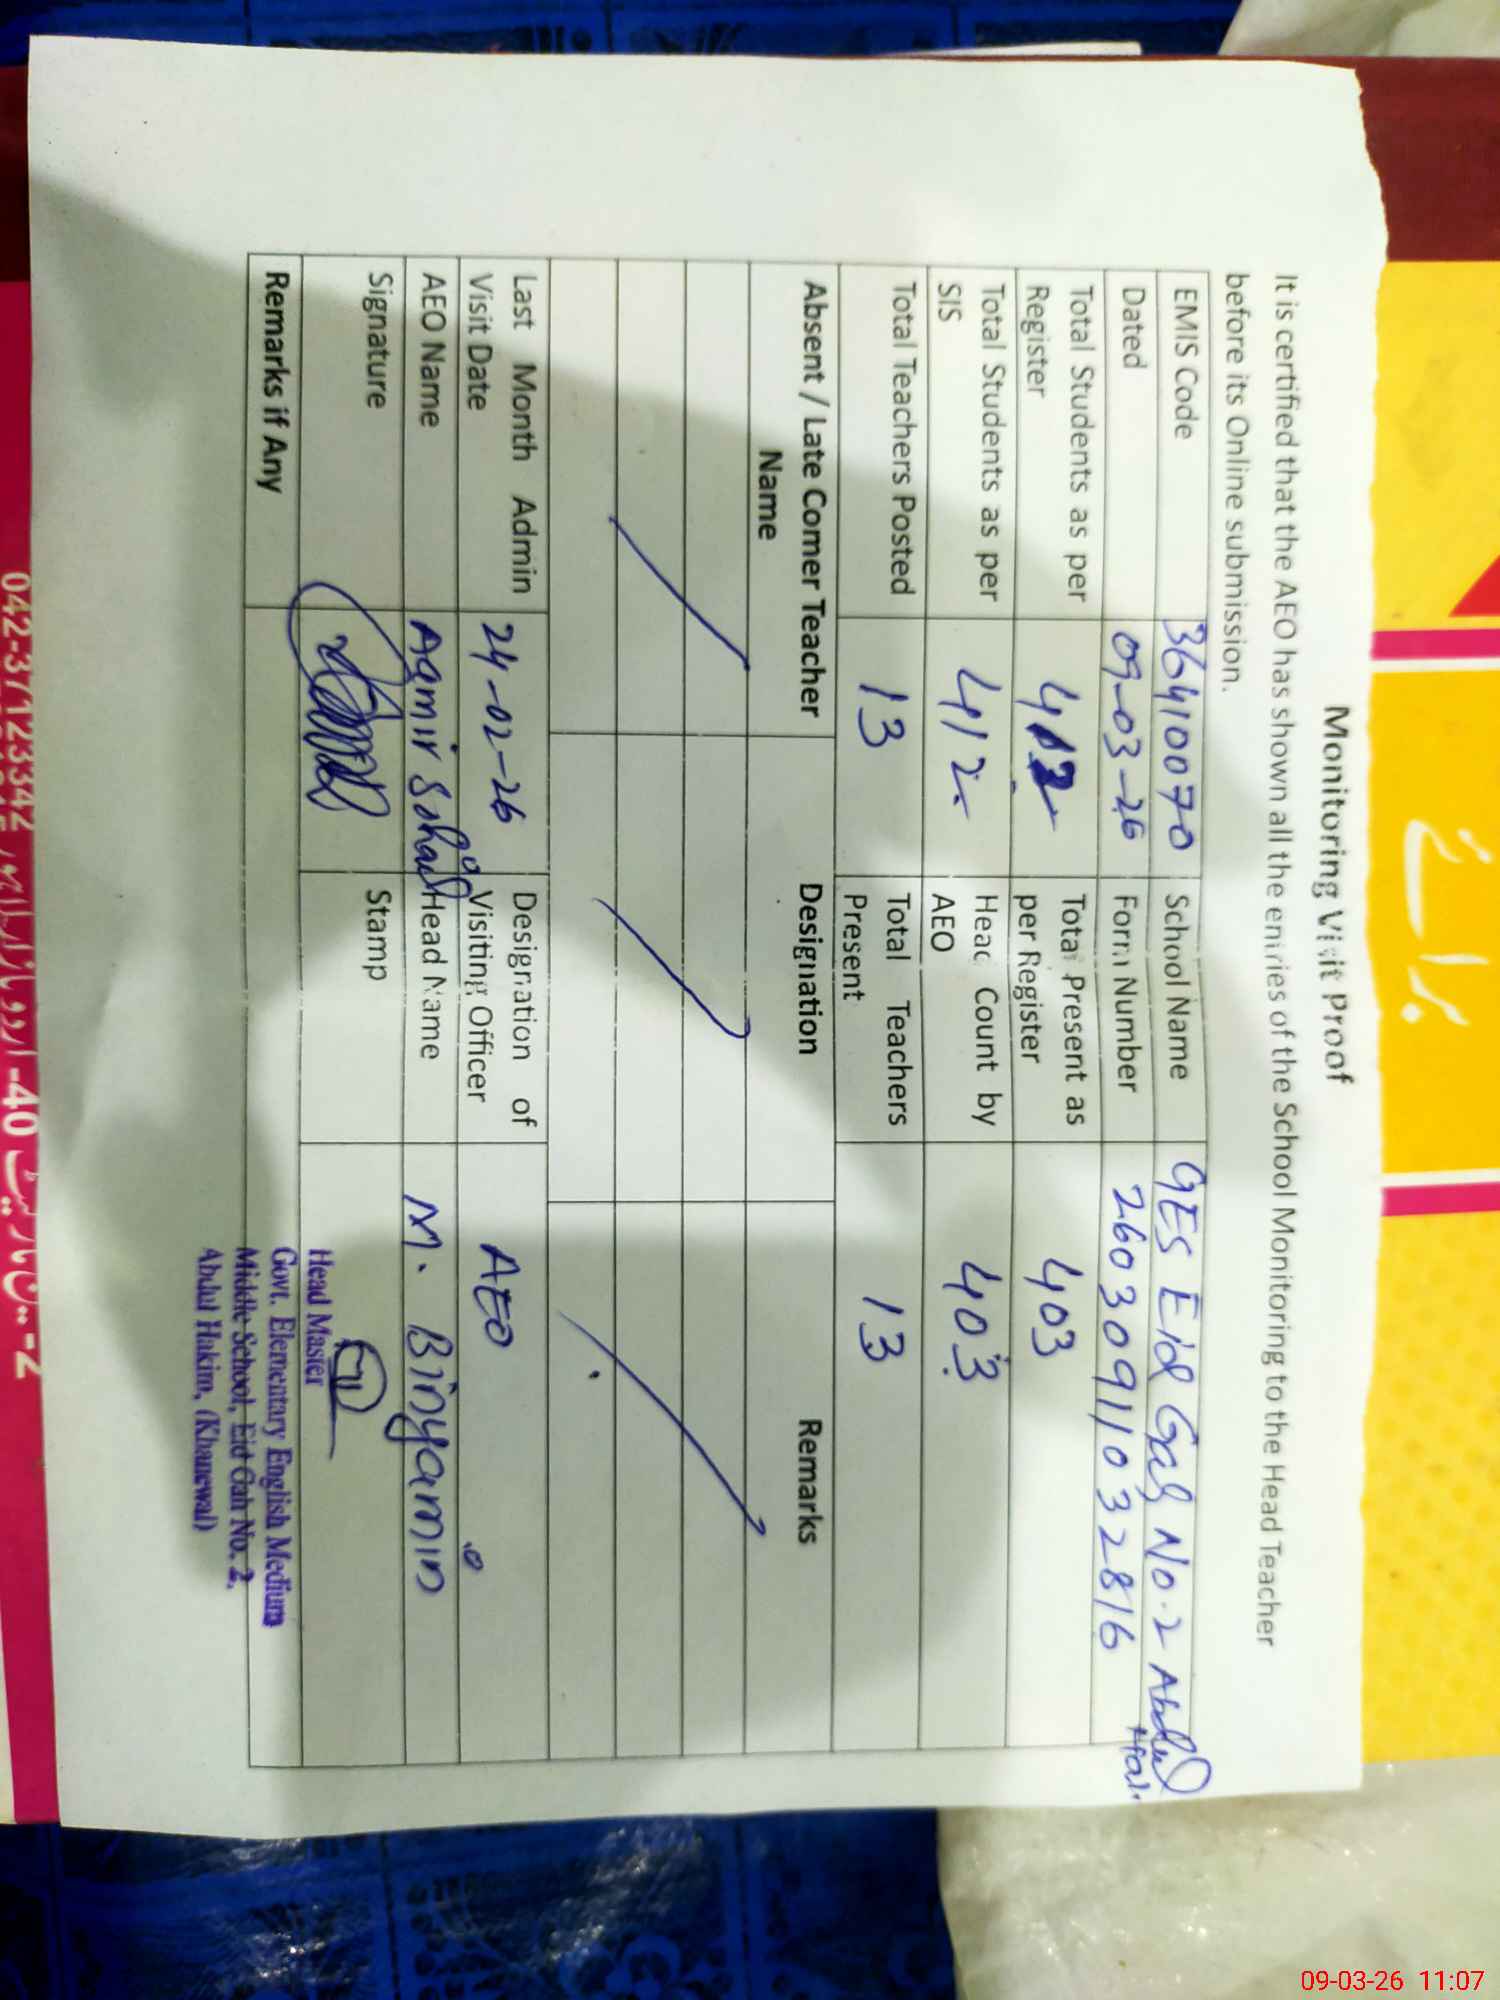 Monitoring Visit Proof
It is certified that the AEO has shown all the entries of the School Monitoring to the Head Teacher
before its Online submission.
EMIS Code 36410070 School Name GES Eid Gah No.2 Abdul
Hak.
Dated 09-03-26 Form Number 26030911032816
Total Students as per Register 412 Total Present as per Register 403
Total Students as per SIS 412 Head Count by AEO 403
Total Teachers Posted 13 Total Teachers Present 13
Absent / Late Comer Teacher Name Designation Remarks
Last Month Admin Visit Date 24-02-26 Designation of Visiting Officer AEO
AEO Name Aamir Sohail Head Name M. Binyamin
Signature Stamp
Head Master
Govt. Elementary English Medium
Middle School, Eid Gah No. 2,
Abdul Hakim, (Khanewal)
Remarks if Any
042-37123342
40-اردو بازار لاہور
09-03-26 11:07